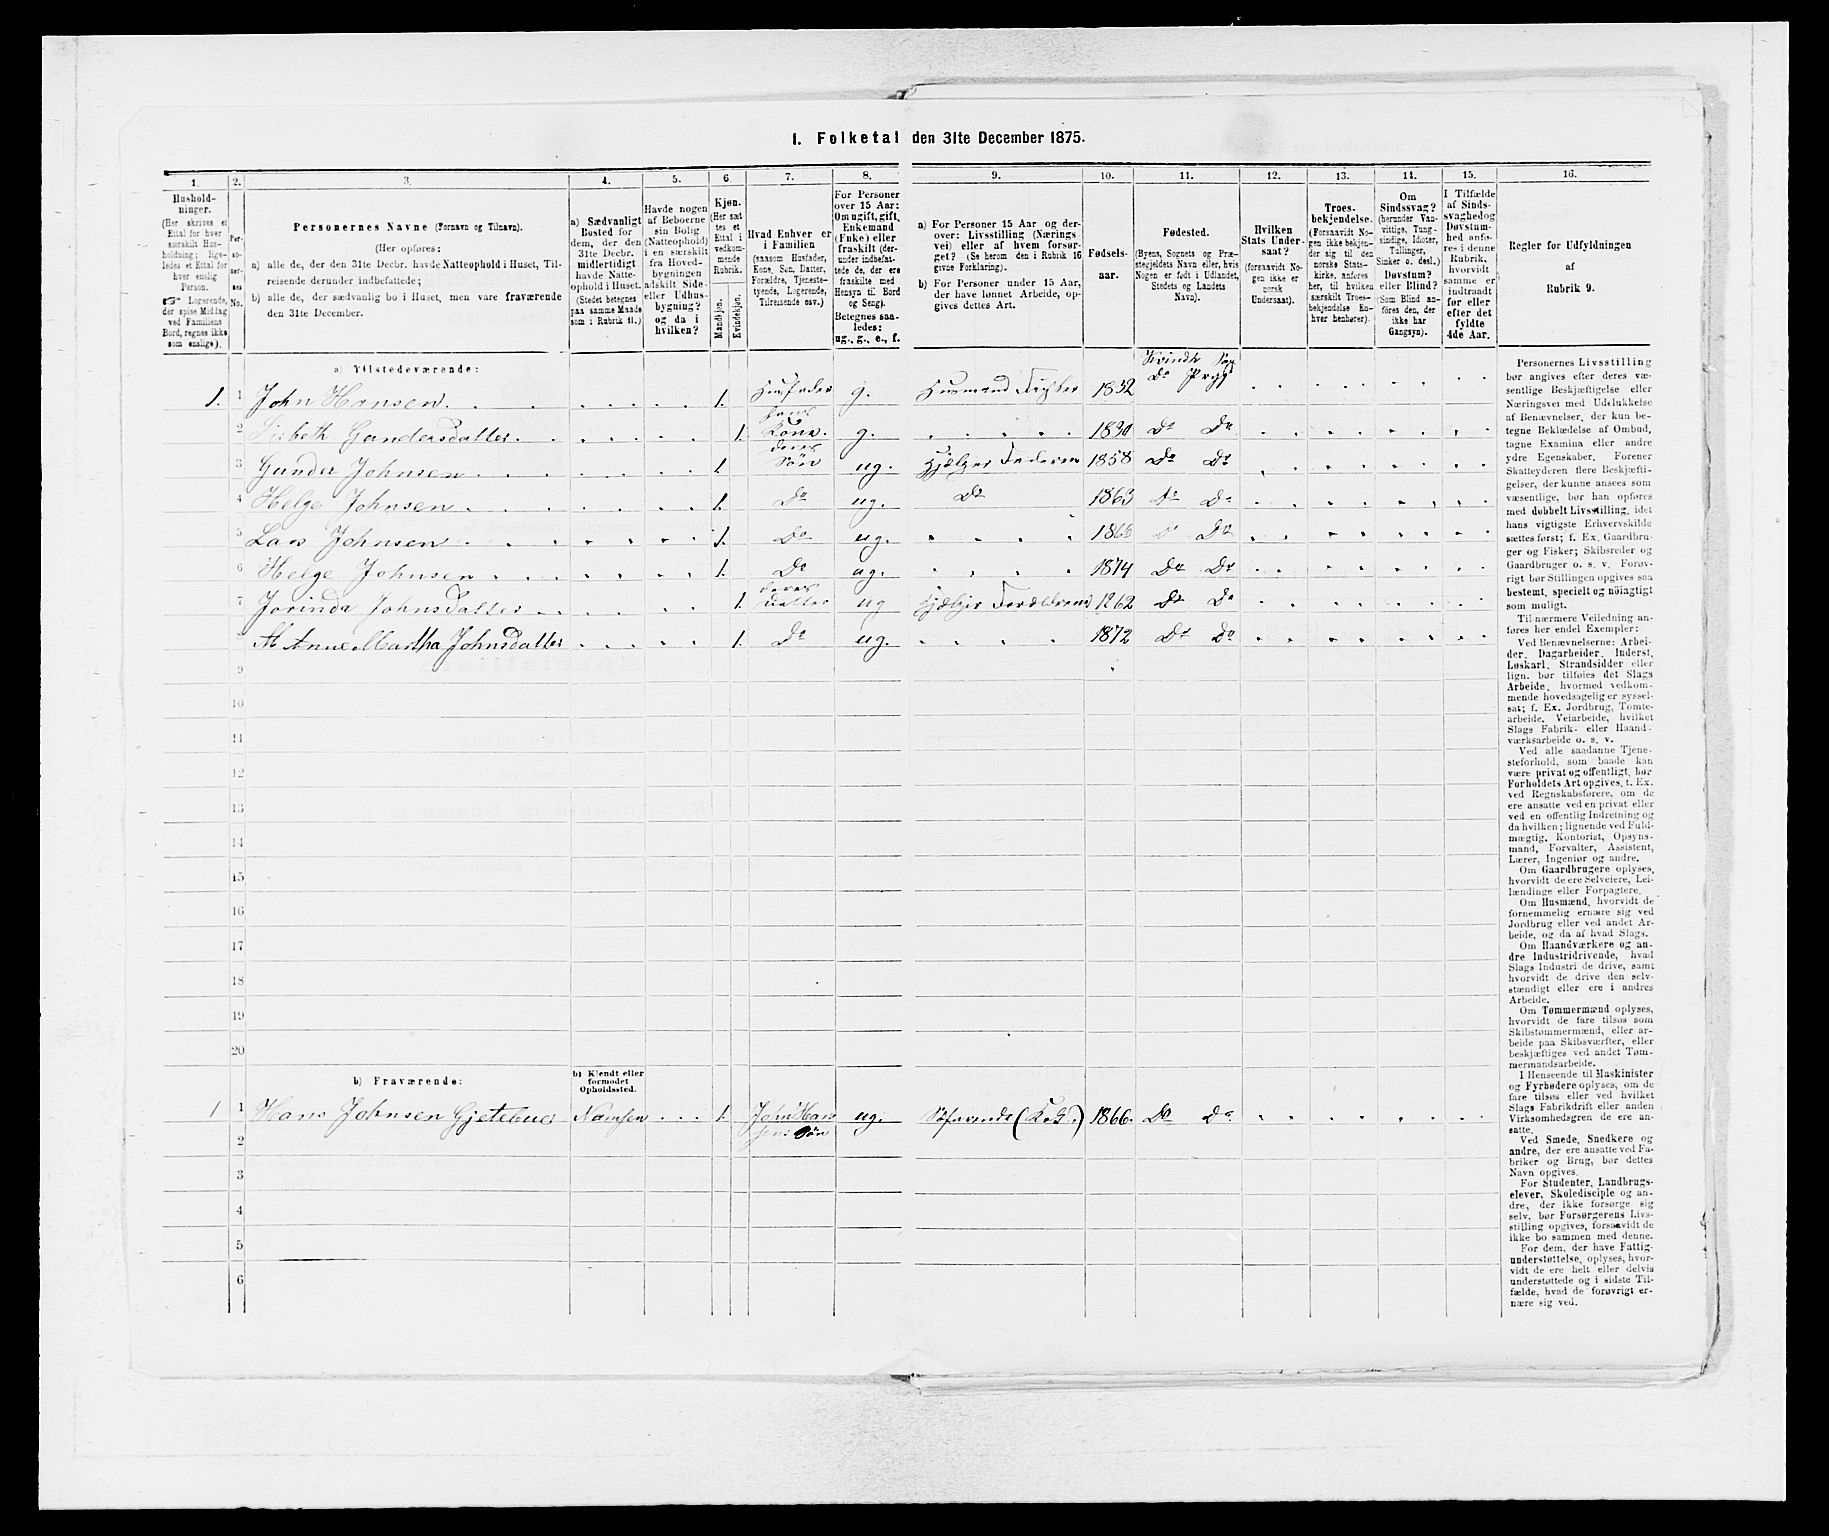 1. Folketal den 31te December 1875.
1. 2. 3. 4. 5. 6. 7. 8. 9. 10. 11. 12. 13. 14. 15. 16.
Hushold-
ninger.
(Her skrives et
Ettal for hver
særskilt Hus-
holdning; lige-
ledes et Ettal for
hver enslig
Person.
☞ Logerende,
der spise Middag
ved Familiens
Bord, regnes ikke
som enslige).
Per-
so-
ner-
nes
No.
Personernes Navne (Fornavn og Tilnavn).
(Her opføres:
a) alle de, der den 31te Decbr. havde Natteophold i Huset, Til-
reisende derunder indbefattede;
b) alle de, der sædvanlig bo i Huset, men vare fraværende
den 31te December.
a) Sædvanligt
Bosted for
dem, der den
31te Decbr.
midlertidigt
havde Natte-
ophold i Huset.
(Stedet betegnes
paa samme Maade
som i Rubrik 11.)
Havde nogen
af Beboerne
sin Bolig
(Natteophold)
i en særskilt
fra Hoved-
bygningen
adskilt Side-
eller Udhus-
bygning?
og da i
hvilken?
Kjøn.
(Her sæt-
tes et
Ettal i
vedkom-
mende
Rubrik.
Mandkjøn.
Kvindekjøn.
Hvad Enhver er
i Familien
(saasom Husfader,
Kone, Søn, Datter,
Forældre, Tjeneste-
tyende, Logerende,
Tilreisende osv.)
For Personer
over 15 Aar:
Om ugift, gift,
Enkemand
(Enke) eller
fraskilt (der-
under indbefat-
tede de, der ere
fraskilte med
Hensyn til Bord
og Seng).
Betegnes saa-
ledes:
ug., g., e., f.
a) For Personer 15 Aar og der-
over: Livsstilling (Nærings-
vei) eller af hvem forsør-
get? (Se herom den i Rubrik 16
givne Forklaring).
b) For Personer under 15 Aar,
der have lønnet Arbeide, op-
gives dettes Art.
Fødsels-
aar.
Fødested.
(Byens, Sognets og Præ-
stegjeldets Navn eller, hvis
Nogen er født i Udlandet,
Stedets og Landets
Navn).
Hvilken
Stats Under-
saat?
(forsaavidt No-
gen ikke er
norsk
Undersaat).
Troes-
bekjendelse.
(Forsaavidt No-
gen ikke bekjen-
der sig til den
norske Stats-
kirke, anføres
her, til hvilken
særskilt Troes-
bekjendelse En-
hver henhører).
Om
Sindssvag?
(herunder Van-
vittige, Tung-
sindige, Idioter,
Tullinger,
Sinker o. desl.)
Døvstum?
eller Blind?
(Som Blind an-
føres den, der
ikke har
Gangsyn).
I Tilfælde
af Sinds-
svaghed og
Døvstum-
hed anfø-
res i denne
Rubrik,
hvorvidt
samme er
indtraadt
før eller
efter det
fyldte
4de Aar.
Regler for Udfyldningen
af
Rubrik 9.
a) Tilstedeværende:
1. 1 John Hansen 1. Husfader g. Husmand Fisker 1832 Kvindh Sog Do Prgj
2 Lisbeth Gundersdatter 1. hans Kone. g. 1830 Do Do
3 Gunder Johnsen 1 deres Søn ug. Hjælper Faderen 1858 Do Do
4 Helge Johnsen 1. Do ug. Do 1863 Do Do
5 Lars Johnsen 1. Do ug. 1866 Do Do
6 Helge Johnsen 1. Do ug. 1874 Do Do
7 Jorinda Johnsdatter 1. deres Datter ug Hjælper Forældrene 1862 Do Do
8 Anne Martha Johnsdatter 1. Do ug. 1872 Do Do
9
10
11
12
13
14
15
16
17
18
19
20
b) Fraværende:
b) Kjendt eller
formodet
Opholdssted.
1 1 Hans Johnsen Gjetebue Namsen 1. John Han
sens Søn ug. Søfarende (K.G.) 1866. Do Do
2
3
4
5
6
Personernes Livsstilling
bør angives efter deres væ-
sentlige Beskjæftigelse eller
Næringsvei med Udelukkelse
af Benævnelser, der kun be-
tegne Beklædelse af Ombud,
tagne Examina eller andre
ydre Egenskaber. Forener
Skatteyderen flere Beskjæfti-
gelser, der kunne ansees som
væsentlige, bør han opføres
med dobbelt Livsstilling, idet
hans vigtigste Erhvervskilde
sættes først; f. Ex. Gaardbru-
ger og Fisker; Skibsreder og
Gaardbruger o. s. v. Forøv-
rigt bør Stillingen opgives saa
bestemt, specielt og nøiagtigt
som muligt.
Til nærmere Veiledning an-
føres her endel Exempler:
Ved Benævnelserne: Arbei-
der, Dagarbeider, Inderst,
Løskarl, Strandsidder eller
lign. bør tilføies det Slags
Arbeide, hvormed vedkom-
mende hovedsagelig er syssel-
sat; f. Ex. Jordbrug, Tomte-
arbeide, Veiarbeide, hvilket
Slags Fabrik- eller Haand-
værksarbeide o. s. v.
Ved alle saadanne Tjene-
steforhold, som baade kan
være privat og offentligt, bør
Forholdets Art opgives, t. Ex.
ved Regnskabsførere, om de
ere ansatte ved en privat eller
ved en offentlig Indretning og
da hvilken; lignende ved Fuld-
mægtig, Kontorist, Opsyns-
mand, Forvalter, Assistent,
Lærer, Ingeniør og andre.
Om Gaardbrugere oplyses,
hvorvidt de ere Selveiere, Lei-
lændinge eller Forpagtere.
Om Husmænd, hvorvidt de
fornemmelig ernære sig ved
Jordbrug eller ved andet Ar-
beide, og da af hvad Slags.
Om Haandværkere og an-
dre Industridrivende, hvad
Slags Industri de drive, samt
hvorvidt de drive den selv-
stændigt eller ere i andres
Arbeide.
Om Tømmermænd oplyses,
hvorvidt de fare tilsøs som
Skibstømmermænd, eller ar-
beide paa Skibsværfter, eller
beskjæftiges ved andet Tøm-
mermandsarbeide.
I Henseende til Maskinister
og Fyrbødere oplyses, om de
fare tilsøs eller ved hvilket
Slags Fabrikdrift eller anden
Virksomhedsgren de ere an-
satte.
Ved Smede, Snedkere og
andre, der ere ansatte ved Fa-
briker og Brug, bør dettes
Navn opgives.
For Studenter, Landbrugs-
elever, Skoledisciple og an-
dre, der ikke forsørge sig
selv, bør Forsørgerens Livs-
stilling opgives, forsaavidt de
ikke bo sammen med denne.
For dem, der have Fattig-
understøttelse, oplyses, hvor-
vidt de ere helt eller delvis
understøttede og i sidste Til-
fælde, hvad de forøvrigt er-
nære sig ved.